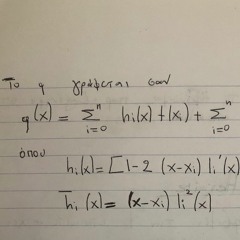 Το q γράφεται σαν
q(x) = Σ_{i=0}^{n} hi(x) f(xi) + Σ_{i=0}^{n}
όπου
hi(x) = [1-2 (x-xi) li'(x)
h̄i (x) = (x-xi) li²(x)